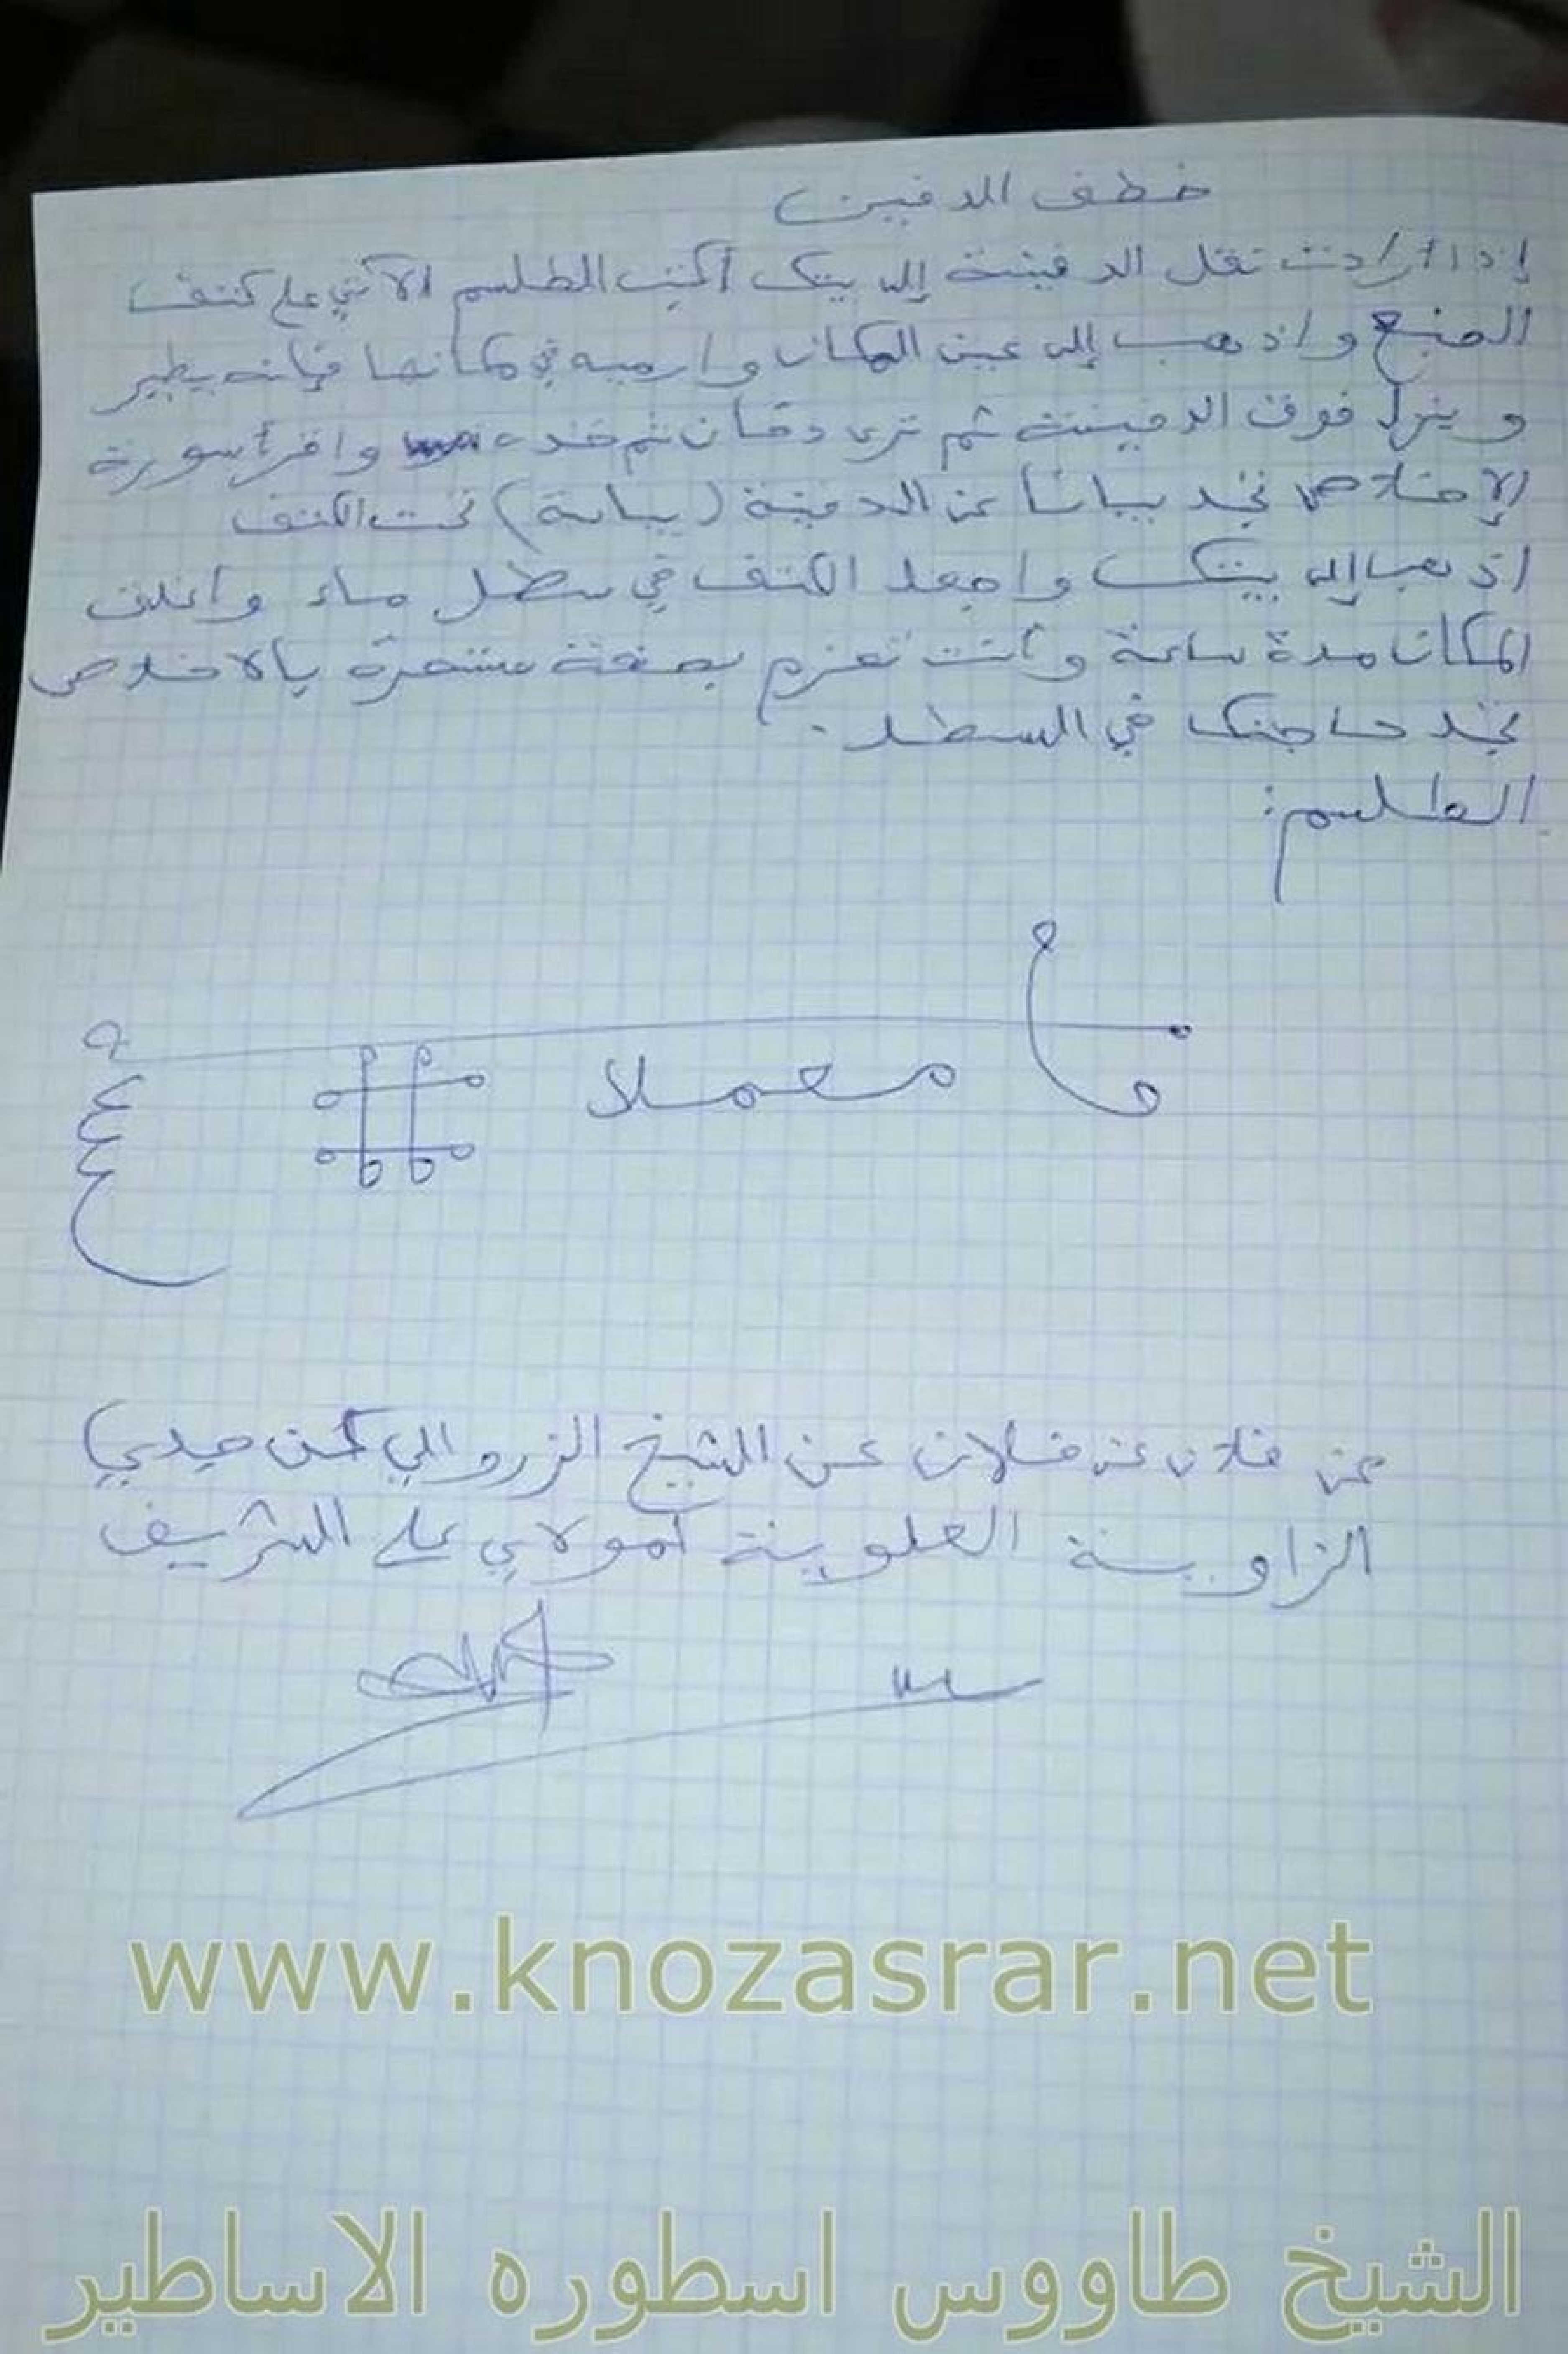 خطف الدفين
إذا أرادت نقل الدفينة إلى بيتك أكتب الطلسم الآتي على كتف
الضبع واذهب إلى عين المكان وارميه في مكانها فإنه يطير
وينزل فوق الدفينة ثم ترى دخان ثم خذه واقرأ سورة
الإخلاص تجد بيانا عن الدفينة (بيانة) تحت الكتف
اذهب إلى بيتك واجعل الكتف في سطل ماء وأغلق
المكان مدة ساعة وأنت تعزم بصفة مستمرة بالاخلاص
تجد حاجتك في السطل.
الطلسم:
معملا
عن فلان عن فلان عن الشيخ الزروالي عن
الزاوية العلوية أمولاي علي الشريف
www.knozasrar.net
الشيخ طاووس اسطوره الاساطير